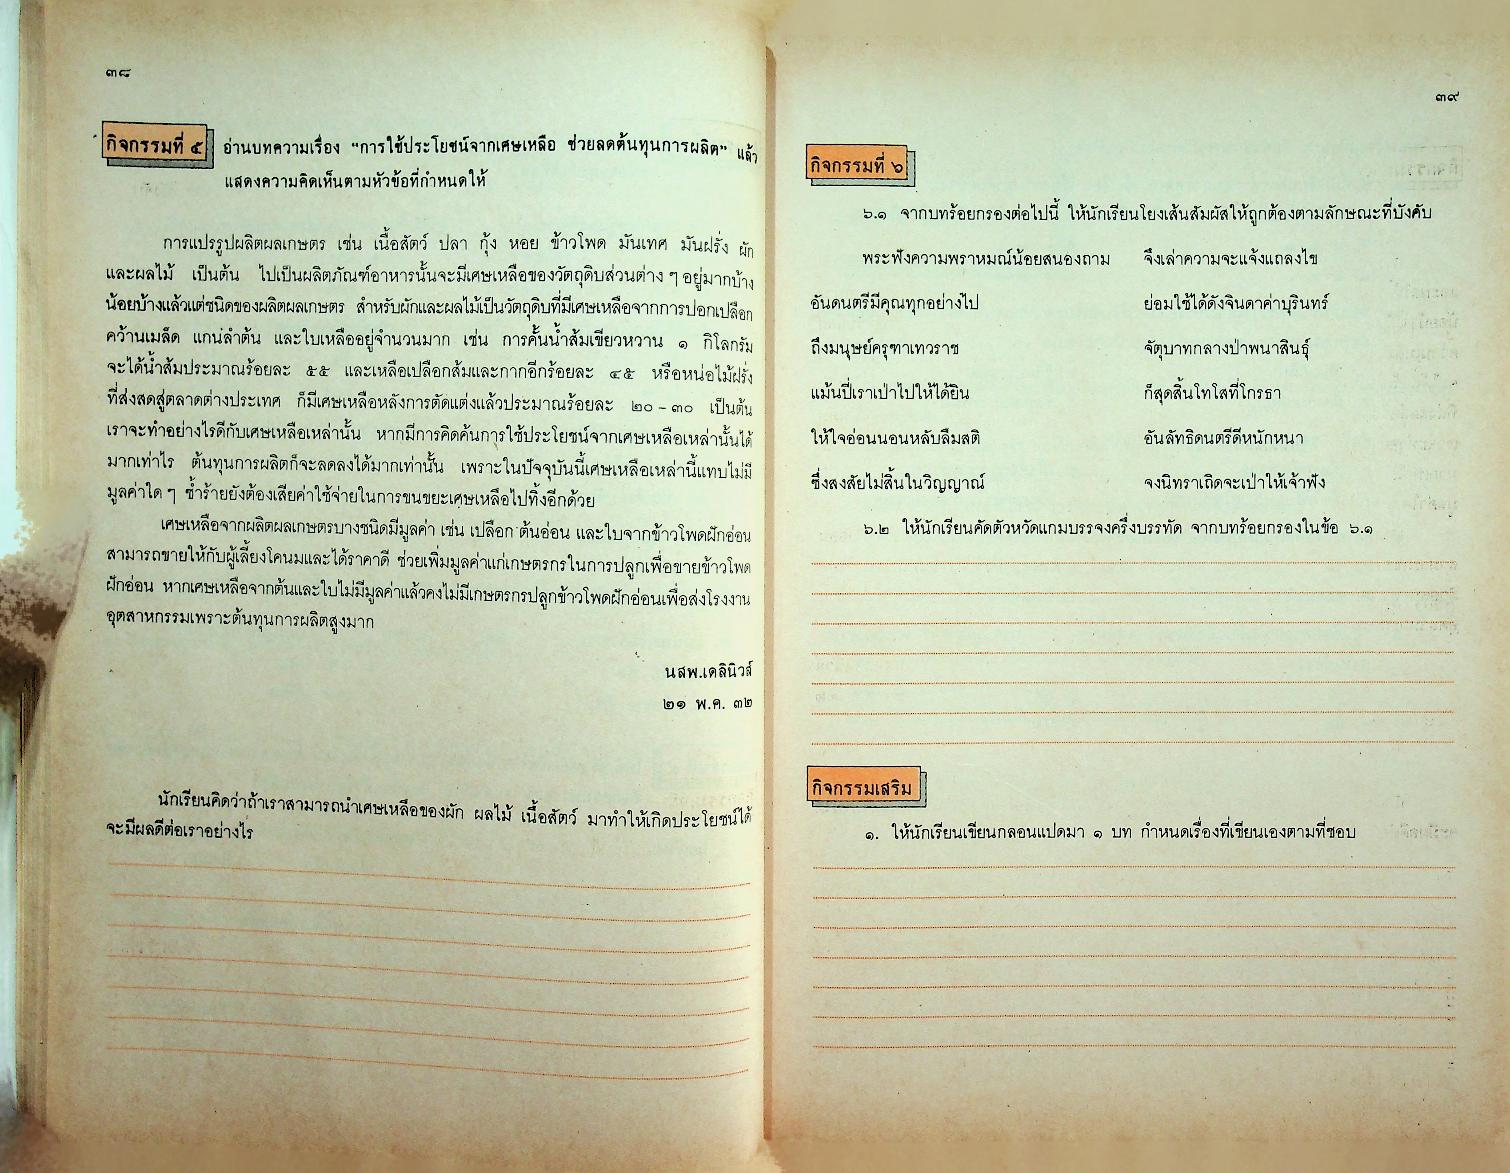 ๓๘
กิจกรรมที่ ๕ อ่านบทความเรื่อง "การใช้ประโยชน์จากเศษเหลือ ช่วยลดต้นทุนการผลิต" แล้ว
แสดงความคิดเห็นตามหัวข้อที่กำหนดให้
การแปรรูปผลิตผลเกษตร เช่น เนื้อสัตว์ ปลา กุ้ง หอย ข้าวโพด มันเทศ มันฝรั่ง ผัก
และผลไม้ เป็นต้น ไปเป็นผลิตภัณฑ์อาหารนั้นจะมีเศษเหลือของวัตถุดิบส่วนต่าง ๆ อยู่มากบ้าง
น้อยบ้างแล้วแต่ชนิดของผลิตผลเกษตร สำหรับผักและผลไม้เป็นวัตถุดิบที่มีเศษเหลือจากการปอกเปลือก
คว้านเมล็ด แกนลำต้น และใบเหลืออยู่จำนวนมาก เช่น การคั้นน้ำส้มเขียวหวาน ๑ กิโลกรัม
จะได้น้ำส้มประมาณร้อยละ ๕๕ และเหลือเปลือกส้มและกากอีกร้อยละ ๔๕ หรือหน่อไม้ฝรั่ง
ที่ส่งสดสู่ตลาดต่างประเทศ ก็มีเศษเหลือหลังการตัดแต่งแล้วประมาณร้อยละ ๒๐ - ๓๐ เป็นต้น
เราจะทำอย่างไรดีกับเศษเหลือเหล่านั้น หากมีการคิดค้นการใช้ประโยชน์จากเศษเหลือเหล่านั้นได้
มากเท่าไร ต้นทุนการผลิตก็จะลดลงได้มากเท่านั้น เพราะในปัจจุบันนี้เศษเหลือเหล่านี้แทบไม่มี
มูลค่าใด ๆ ซ้ำร้ายยังต้องเสียค่าใช้จ่ายในการขนขยะเศษเหลือไปทิ้งอีกด้วย
เศษเหลือจากผลิตผลเกษตรบางชนิดมีมูลค่า เช่น เปลือก ต้นอ่อน และใบจากข้าวโพดฝักอ่อน
สามารถขายให้กับผู้เลี้ยงโคนมและได้ราคาดี ช่วยเพิ่มมูลค่าแก่เกษตรกรในการปลูกเพื่อขายข้าวโพด
ฝักอ่อน หากเศษเหลือจากต้นและใบไม่มีมูลค่าแล้วคงไม่มีเกษตรกรปลูกข้าวโพดฝักอ่อนเพื่อส่งโรงงาน
อุตสาหกรรมเพราะต้นทุนการผลิตสูงมาก
นสพ.เดลินิวส์
๒๑ พ.ค. ๓๒
นักเรียนคิดว่าถ้าเราสามารถนำเศษเหลือของผัก ผลไม้ เนื้อสัตว์ มาทำให้เกิดประโยชน์ได้
จะมีผลดีต่อเราอย่างไร
๓๙
กิจกรรมที่ ๖
๖.๑ จากบทร้อยกรองต่อไปนี้ ให้นักเรียนโยงเส้นสัมผัสให้ถูกต้องตามลักษณะที่บังคับ
พระฟังความพราหมณ์น้อยสนองถาม จึงเล่าความจะแจ้งแถลงไข
อันดนตรีมีคุณทุกอย่างไป ย่อมใช้ได้ดังจินดาค่าบุรินทร์
ถึงมนุษย์ครุฑาเทวราช จัตุบาทกลางป่าพนาสินธุ์
แม้นปี่เราเป่าไปให้ได้ยิน ก็สุดสิ้นโทโสที่โกรธา
ให้ใจอ่อนนอนหลับลืมสติ อันลัทธิดนตรีดีหนักหนา
ซึ่งสงสัยไม่สิ้นในวิญญาณ์ จงนิทราเถิดจะเป่าให้เจ้าฟัง
๖.๒ ให้นักเรียนคัดตัวหวัดแกมบรรจงครึ่งบรรทัด จากบทร้อยกรองในข้อ ๖.๑
กิจกรรมเสริม
๑. ให้นักเรียนเขียนกลอนแปดมา ๑ บท กำหนดเรื่องที่เขียนเองตามที่ชอบ